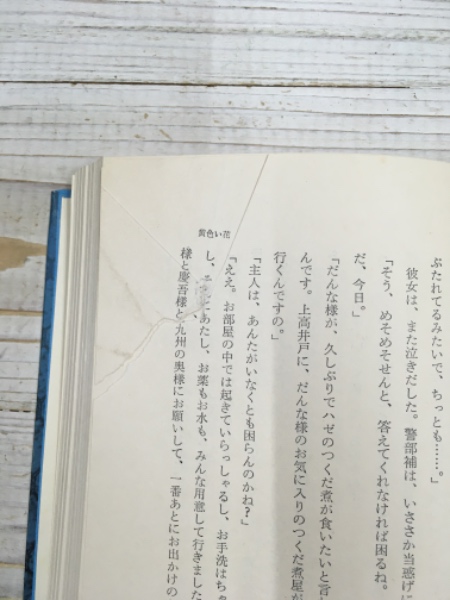 黄色い花
ぶたれてるみたいで、ちっとも……。」
彼女は、また泣きだした。警部補は、いささか当惑げに
「そう、めそめそせんと、答えてくれなければ困るね。
だ、今日。」
「だんな様が、久しぶりでハゼのつくだ煮が食いたいと言
んです。上高井戸に、だんな様のお気に入りのつくだ煮屋が
行くんですの。」
「主人は、あんたがいなくとも困らんのかね?」
「ええ。お部屋の中では起きていらっしゃるし、お手洗はち
し、あたし、お薬もお水も、みんな用意して行きました
様と慶吾様と九州の奥様にお願いして、一番あとにお出かけの